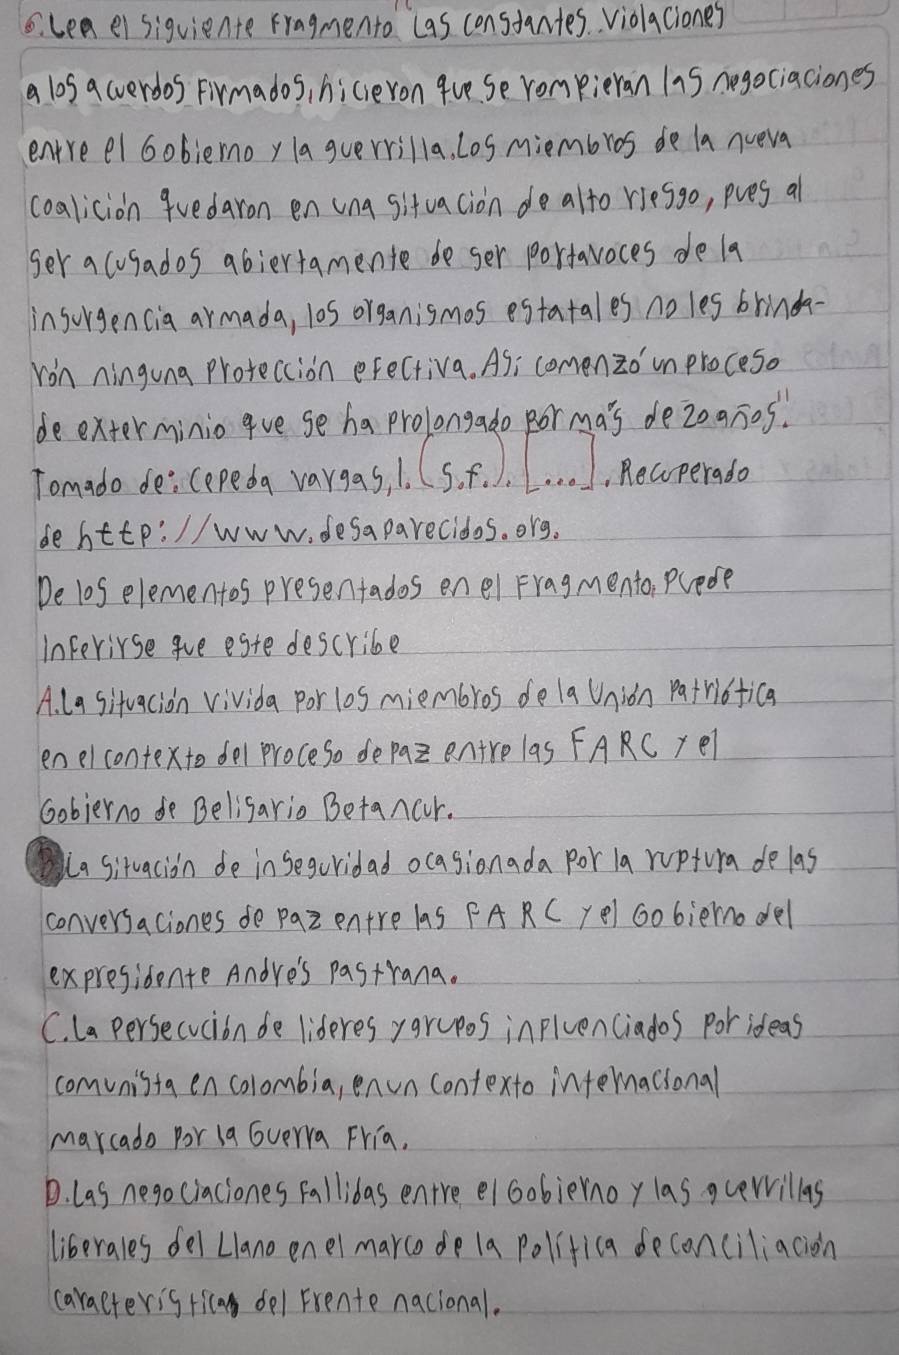 6. Lea el siguiente Fragmento "Las constantes violaciones
a los acuerdos Firmados, hicieron que se rompieran las negociaciones
entre el Gobierno y la guerrilla. Los miembros de la nueva
coalición quedaron en una situación de alto riesgo, pues al
ser acusados abiertamente de ser portavoces de la
insurgencia armada, los organismos estatales no les brinda-
rón ninguna Protección efectiva. Así comenzó un proceso
de exterminio que se ha prolongado por más de 20 años".
Tomado de: Cepeda vargas, I. (s.f.). [...]. Recuperado
de http://www.desaparecidos.org.
De los elementos presentados en el Fragmento, puede
inferirse que este describe
A. La situación vivida por los miembros de la Unión patriótica
en el contexto del proceso de paz entre las FARC y el
Gobierno de Belisario Betancur.
B. La situación de inseguridad ocasionada por la ruptura de las
conversaciones de paz entre las FARC y el Gobierno del
expresidente Andrés pastrana.
C. La persecución de lideres y grupos influenciados por ideas
comunista en colombia, en un contexto internacional
marcado por la Guerra Fría.
D. Las negociaciones Fallidas entre el Gobierno y las guerrillas
liberales del Llano en el marco de la política de conciliación
características del Frente nacional.